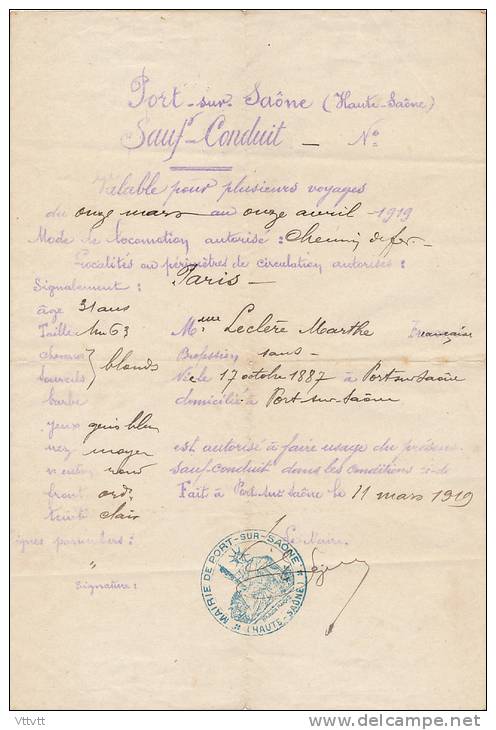 Port-sur-Saône (Haute-Saône)
Sauf-Conduit – No
Valable pour plusieurs voyages
du onze mars au onze avril 1919
Mode de locomotion autorisé : Chemin de fer.–
Localités ou périmètres de circulation autorisés :
Signalement : Paris –
âge 31 ans
Taille 1m63 Mme Leclère Marthe Française
cheveux } blonds Profession sans –
sourcils Née le 17 octobre 1887 à Port sur Saône
barbe domicilié à Port-sur-Saône
yeux gris bleu
nez moyen est autorisé à faire usage du présent
menton rond sauf-conduit dans les conditions ci-de
front ord. Fait à Port sur Saône le 11 mars 1919
teint clair
ignes particuliers : Le Maire
"
Signature :
MAIRIE DE PORT-SUR-SAÔNE
(HAUTE-SAÔNE)
Vttvtt
delcampe.net